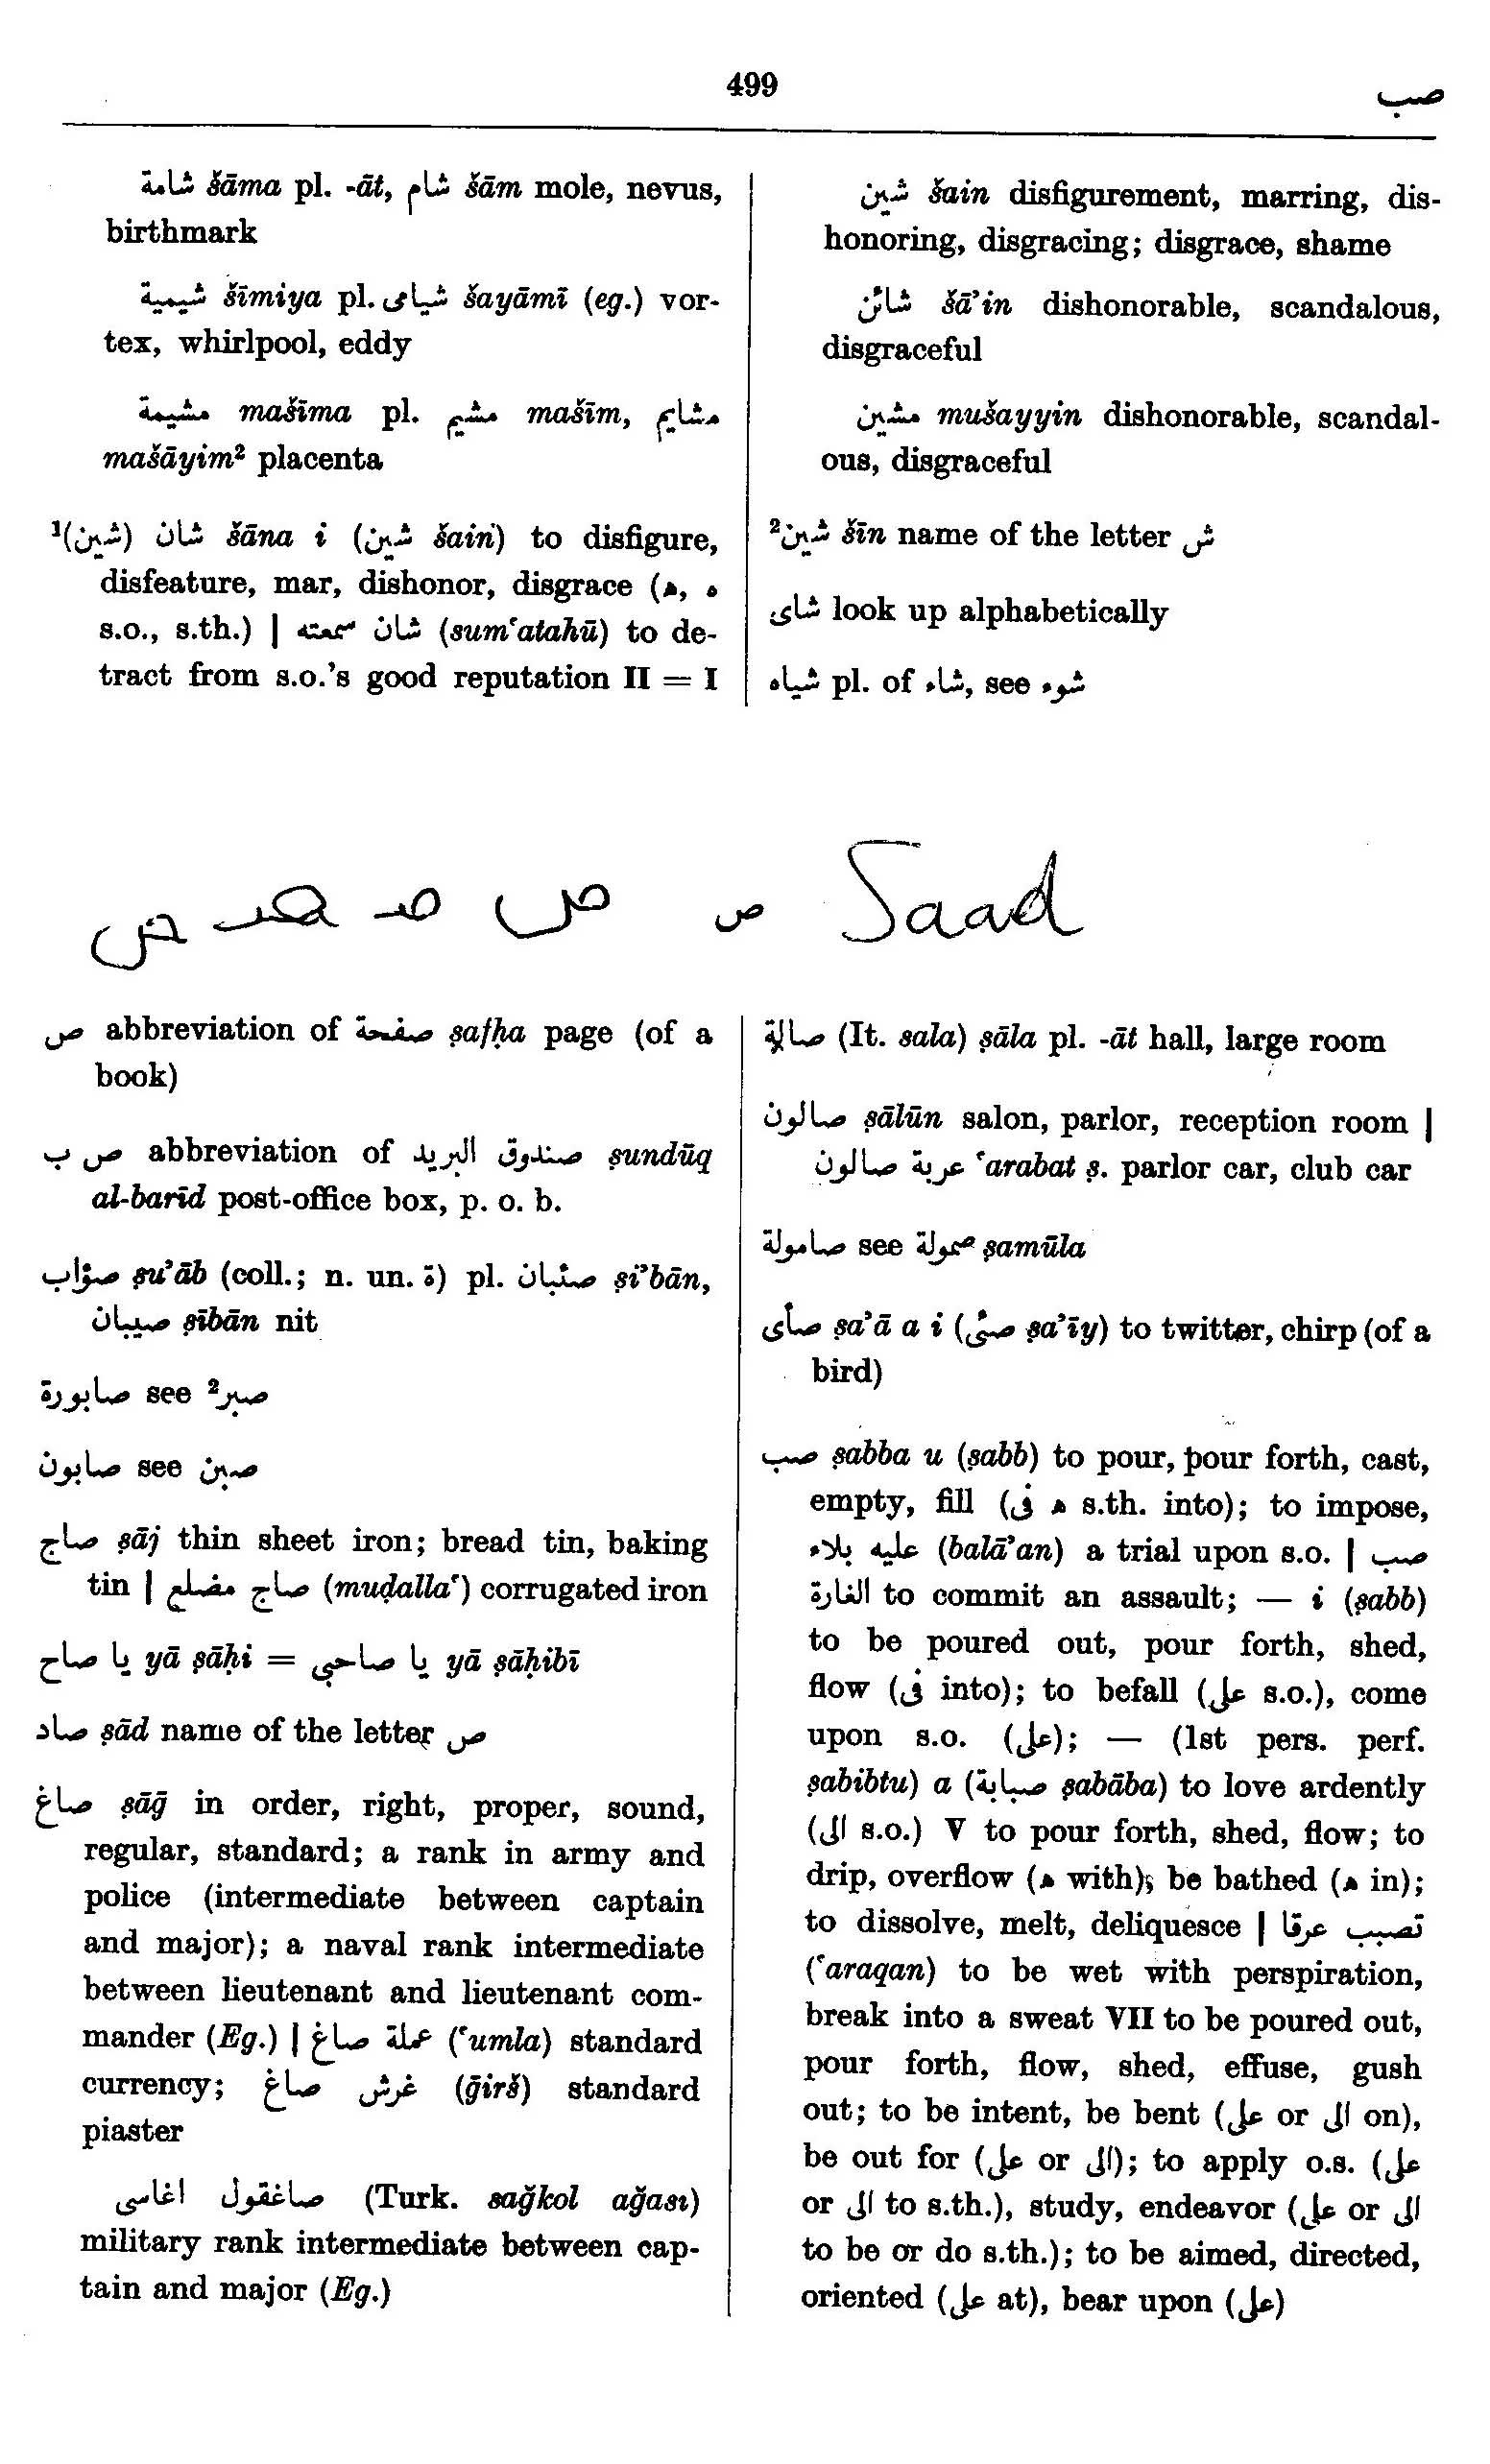 499
صب
شامة šāma pl. -āt, شام šām mole, nevus,
birthmark
شيمية šīmiya pl. شيامى šayāmī (eg.) vor-
tex, whirlpool, eddy
مشيمة mašīma pl. مشيم mašīm, مشايم
mašāyim² placenta
¹(شين) شان šāna i (شين šain) to disfigure,
disfeature, mar, dishonor, disgrace (ه, ه
s.o., s.th.) | شان سمعته (sum‘atahū) to de-
tract from s.o.’s good reputation II = I
شين šain disfigurement, marring, dis-
honoring, disgracing; disgrace, shame
شائن šā’in dishonorable, scandalous,
disgraceful
مشين mušayyin dishonorable, scandal-
ous, disgraceful
²شين šīn name of the letter ش
شاى look up alphabetically
شياه pl. of شاء, see شوء
ص Saad
ص abbreviation of صفحة ṣafḥa page (of a
book)
ص ب abbreviation of صندوق البريد ṣundūq
al-barīd post-office box, p. o. b.
صؤاب ṣu’āb (coll.; n. un. ة) pl. صئبان ṣi’bān,
صيبان ṣībān nit
صابورة see ²صبر
صابون see صبن
صاج ṣāj thin sheet iron; bread tin, baking
tin | صاج مضلع (muḍalla‘) corrugated iron
يا صاح yā ṣāḥi = يا صاحبي yā ṣāḥibī
صاد ṣād name of the letter ص
صاغ ṣāḡ in order, right, proper, sound,
regular, standard; a rank in army and
police (intermediate between captain
and major); a naval rank intermediate
between lieutenant and lieutenant com-
mander (Eg.) | عملة صاغ (‘umla) standard
currency; غرش صاغ (ḡirš) standard
piaster
صاغقول اغاسى (Turk. sağkol ağası)
military rank intermediate between cap-
tain and major (Eg.)
صالة (It. sala) ṣāla pl. -āt hall, large room
صالون ṣālūn salon, parlor, reception room |
عربة صالون ‘arabat ṣ. parlor car, club car
صامولة see صمولة ṣamūla
صأى ṣa’ā a i (صئى ṣa’īy) to twitter, chirp (of a
bird)
صب ṣabba u (ṣabb) to pour, pour forth, cast,
empty, fill (ه فى s.th. into); to impose,
عليه بلاء (balā’an) a trial upon s.o. | صب
الغارة to commit an assault; — i (ṣabb)
to be poured out, pour forth, shed,
flow (فى into); to befall (على s.o.), come
upon s.o. (على); — (1st pers. perf.
ṣabibtu) a (صبابة ṣabāba) to love ardently
(الى s.o.) V to pour forth, shed, flow; to
drip, overflow (ه with); be bathed (ه in);
to dissolve, melt, deliquesce | تصبب عرقا
(‘araqan) to be wet with perspiration,
break into a sweat VII to be poured out,
pour forth, flow, shed, effuse, gush
out; to be intent, be bent (على or الى on),
be out for (على or الى); to apply o.s. (على
or الى to s.th.), study, endeavor (على or الى
to be or do s.th.); to be aimed, directed,
oriented (على at), bear upon (على)